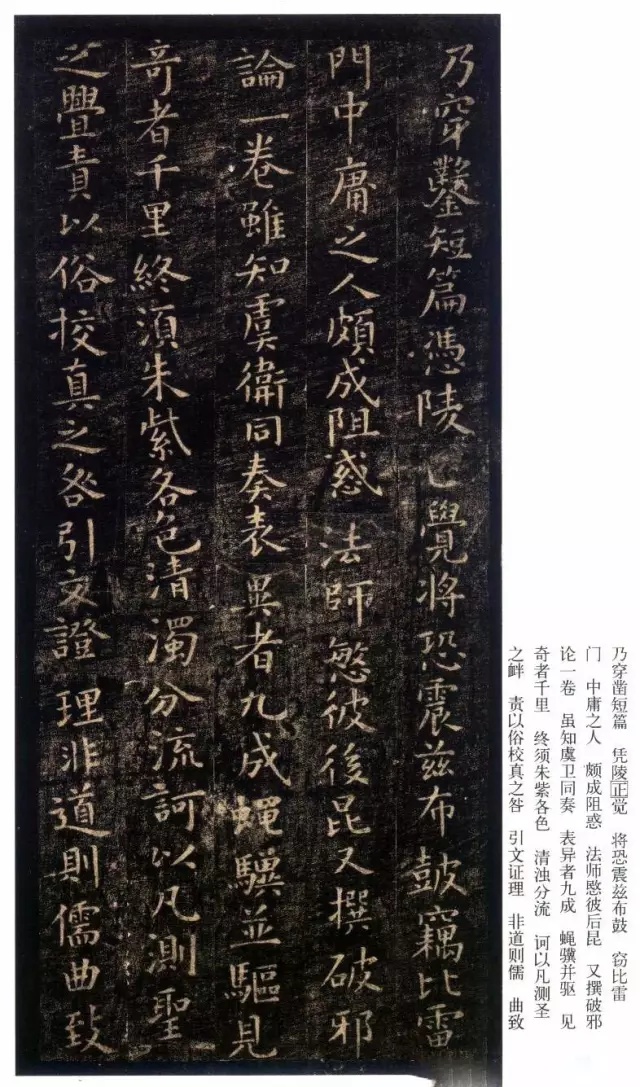 乃穿鑿短篇憑陵正覺將恐震茲布鼓竊比雷
門中庸之人頗成阻惑法師愍彼後昆又撰破邪
論一卷雖知虞衛同奏表異者九成蝇驥並驅見
奇者千里終湏朱紫各色清濁分流訶以凡測聖
之舋責以俗挍真之咎引文證理非道則儒曲致
乃穿凿短篇 凭陵正觉 将恐震兹布鼓 窃比雷
门 中庸之人 颇成阻惑 法师愍彼后昆 又撰破邪
论一卷 虽知虞卫同奏 表异者九成 蝇骥并驱 见
奇者千里 终须朱紫各色 清浊分流 诃以凡测圣
之衅 责以俗校真之咎 引文证理 非道则儒 曲致